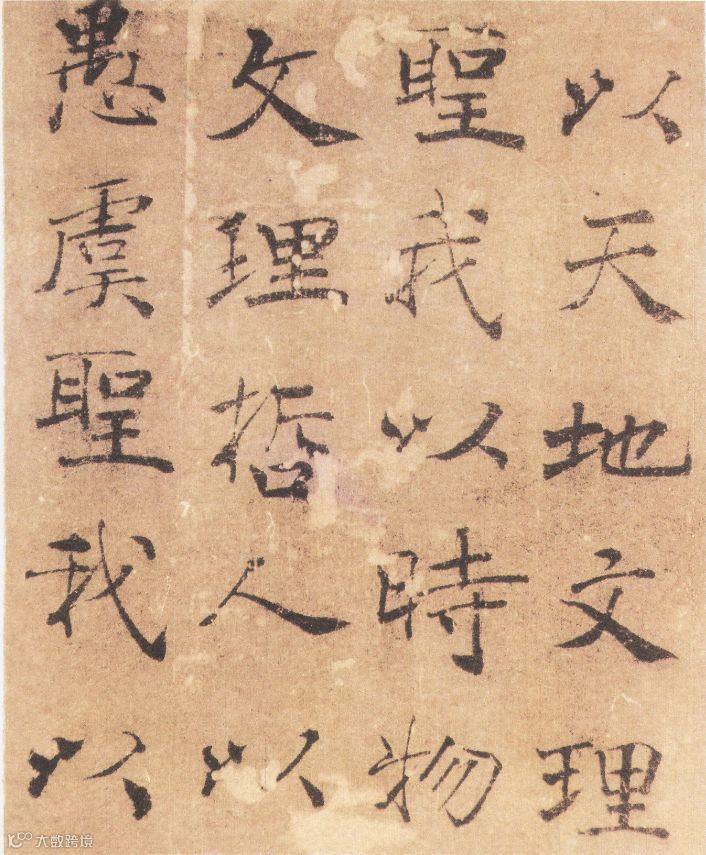 以天地文理
聖我以時物
文理哲人以
愚虞聖我以
大数跨境